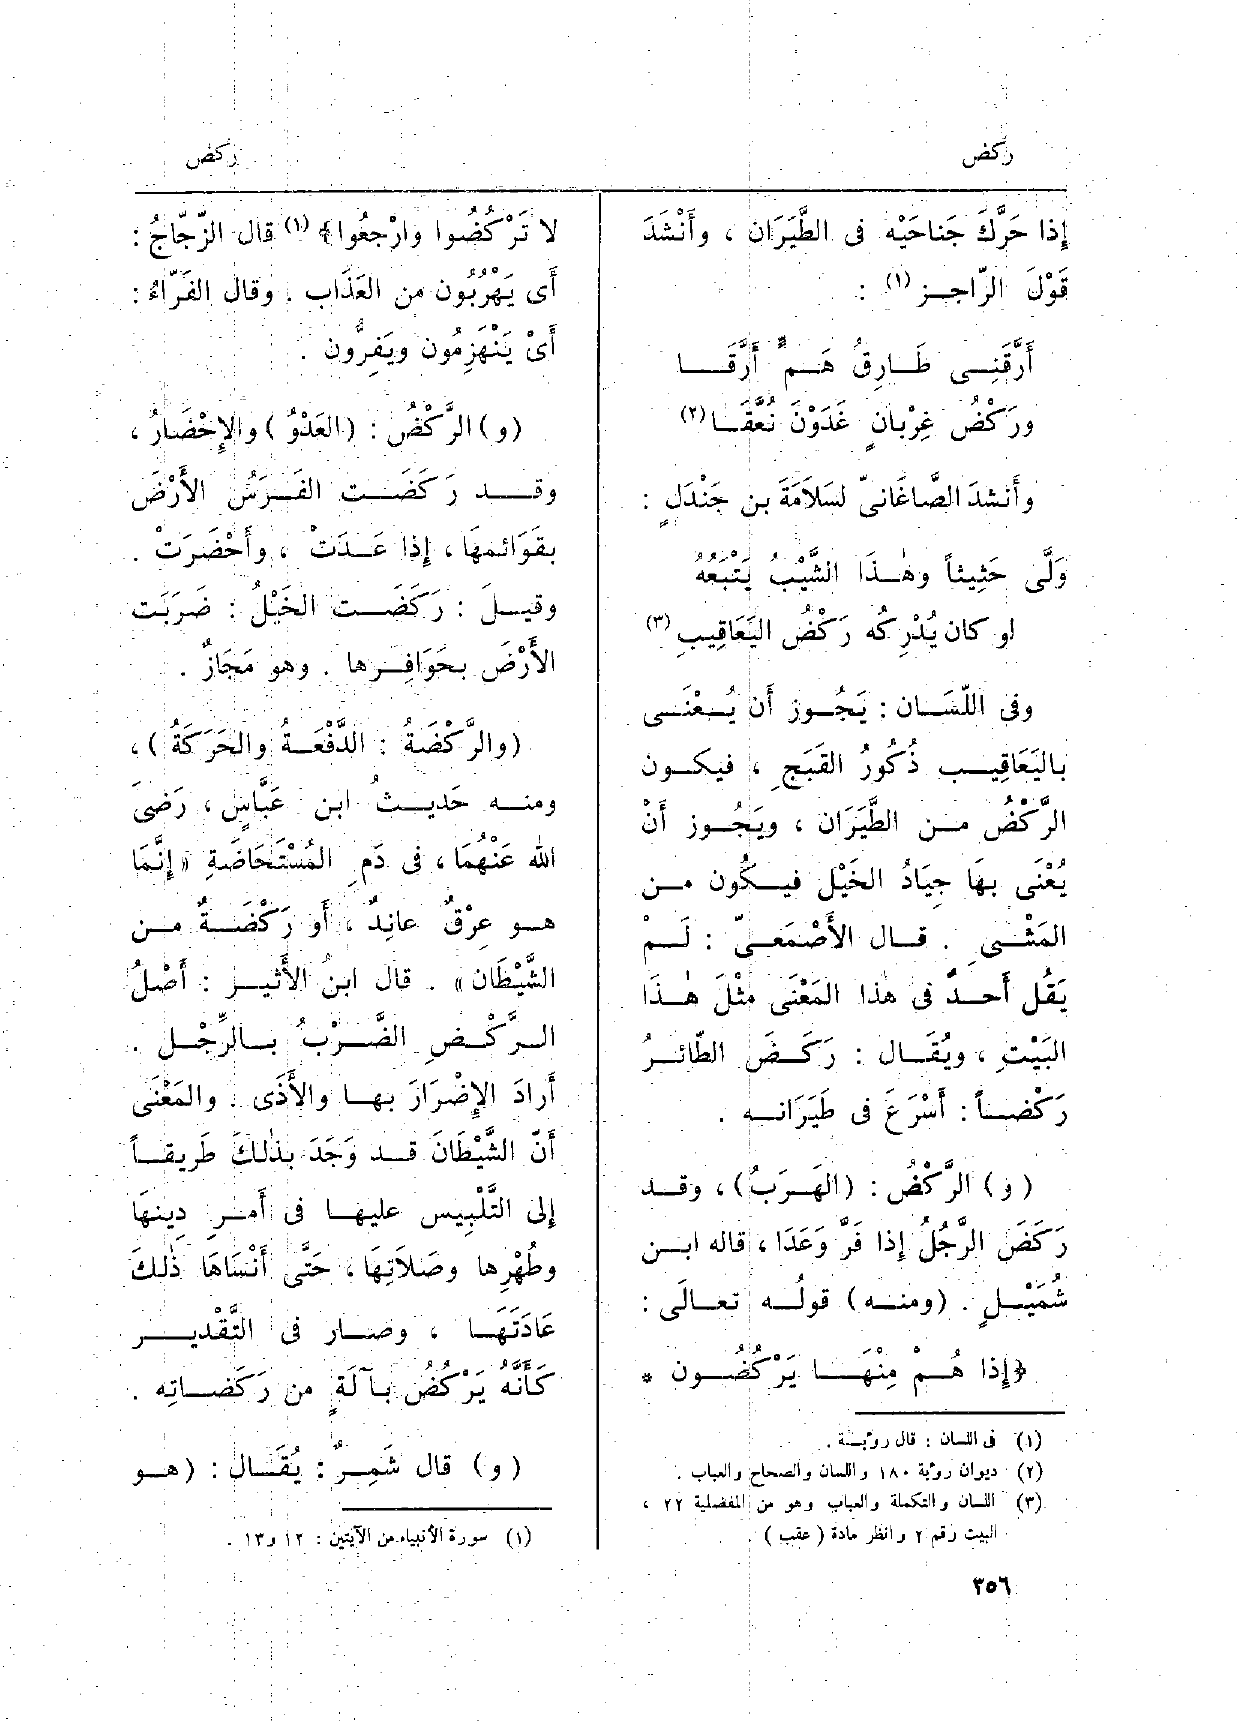 ركض
ركض
إذا حَرَّكَ جَناحَيْه فى الطَّيَرَان ، وأَنْشَدَ
قَوْلَ الرّاجـز (١) :
أَرَّقَنِـى طَـارِقُ هَـمٍّ أَرَّقَـا
ورَكْضُ غِرْبانٍ غَدَوْنَ نُعَّقَـا (٢)
وأَنشدَ الصَّاغَانىّ لسَلَامَةَ بن جَنْدَلٍ :
وَلَّى حَثِيثاً وهٰـذا الشَّيْبُ يَتْبَعُهُ
لو كان يُدْرِكه رَكْضُ اليَعَاقِيبِ (٣)
وفى اللّسَـان : يَجُـوز أَن يُـعْنَـى
باليَعَاقِيـب ذُكُورُ القَبَجِ ، فيكـون
الرَّكْضُ مـن الطَّيَرَان ، ويَجُـوز أَنْ
يُعْنَى بهَا جِيَادُ الخَيْل فيـكُون مـن
المَشْـىِ . قـال الأَصْمَعـىّ : لَـمْ
يَقُل أَحـدٌ فى هذا المَعْنَى مثْلَ هٰـذَا
البَيْتِ ، ويُقَـال : رَكَـضَ الطّائـرُ
رَكْضـاً : أَسْرَعَ فى طَيَرَانـه .
( و ) الرَّكْضُ : (الهَـرَبُ) ، وقـد
رَكَضَ الرَّجُلُ إذا فَرَّ وَعَدَا ، قاله ابـن
شُمَيْـلٍ . (ومنـه) قولُـه تعـالَى :
﴿إذا هُـمْ مِنْهَـا يَرْكُضُـون *
(١) فى اللسان : قال رؤبـة .
(٢) ديوان رؤبة ١٨٠ واللسان والصحاح والعباب .
(٣) اللسان والتكملة والعباب وهو من المفضلية ٢٢ ،
البيت رقم ٢ وانظر مادة ( عقب )
٣٥٦
لا تَرْكُضُوا وارْجِعُوا﴾ (١) قال الزّجّاجُ :
أَى يَهْرُبُون من العَذَاب . وقال الفَرّاءُ :
أَىْ يَنْهَزِمُون ويَفِرُّون .
(و) الرَّكْضُ : (العَدْوُ) والإِحْضَارُ ،
وقـد رَكَضَـت الفَـرَسُ الأَرْضَ
بقَوَائمهَا ، إذا عَـدَتْ ، وأَحْضَرَتْ .
وقيـلَ : رَكَضَـت الخَيْلُ : ضَرَبَت
الأَرْضَ بحَوَافِـرها . وهو مَجَازٌ .
(والرَّكْضَةُ : الدَّفْعَـةُ والحَرَكَةُ) ،
ومنـه حَديـثُ ابن عَبَّاسٍ ، رَضىَ
الله عَنْهُمَا ، فى دَمِ المُسْتَحَاضَةِ « إنَّمَا
هـو عِرْقٌ عانِدٌ ، أَو رَكْضَـةٌ مـن
الشَّيْطَان » . قال ابنُ الأَثيـر : أَصْلُ
الـرَّكْـضِ الضَّـرْبُ بـالرِّجْـل .
أَرادَ الإضْرَارَ بهـا والأَذَى . والمَعْنَى
أَنّ الشَّيْطَانَ قـد وَجَدَ بذٰلكَ طَريقـاً
إلى التَّلْبِيس عليهـا فى أَمـرِ دِينهَا
وطُهْرِها وصَلَاتِهَا ، حَتَّى أَنْسَاهَا ذٰلكَ
عَادَتَهَـا ، وصـار فى التَّقْديـر
كَأَنَّهُ يَرْكُضُ بـآلَةٍ من رَكَضَـاتِه .
( و ) قال شَمِـرٌ : يُقَـال : (هـو
(١) سورة الأنبياء من الآيتين : ١٢ و١٣ .